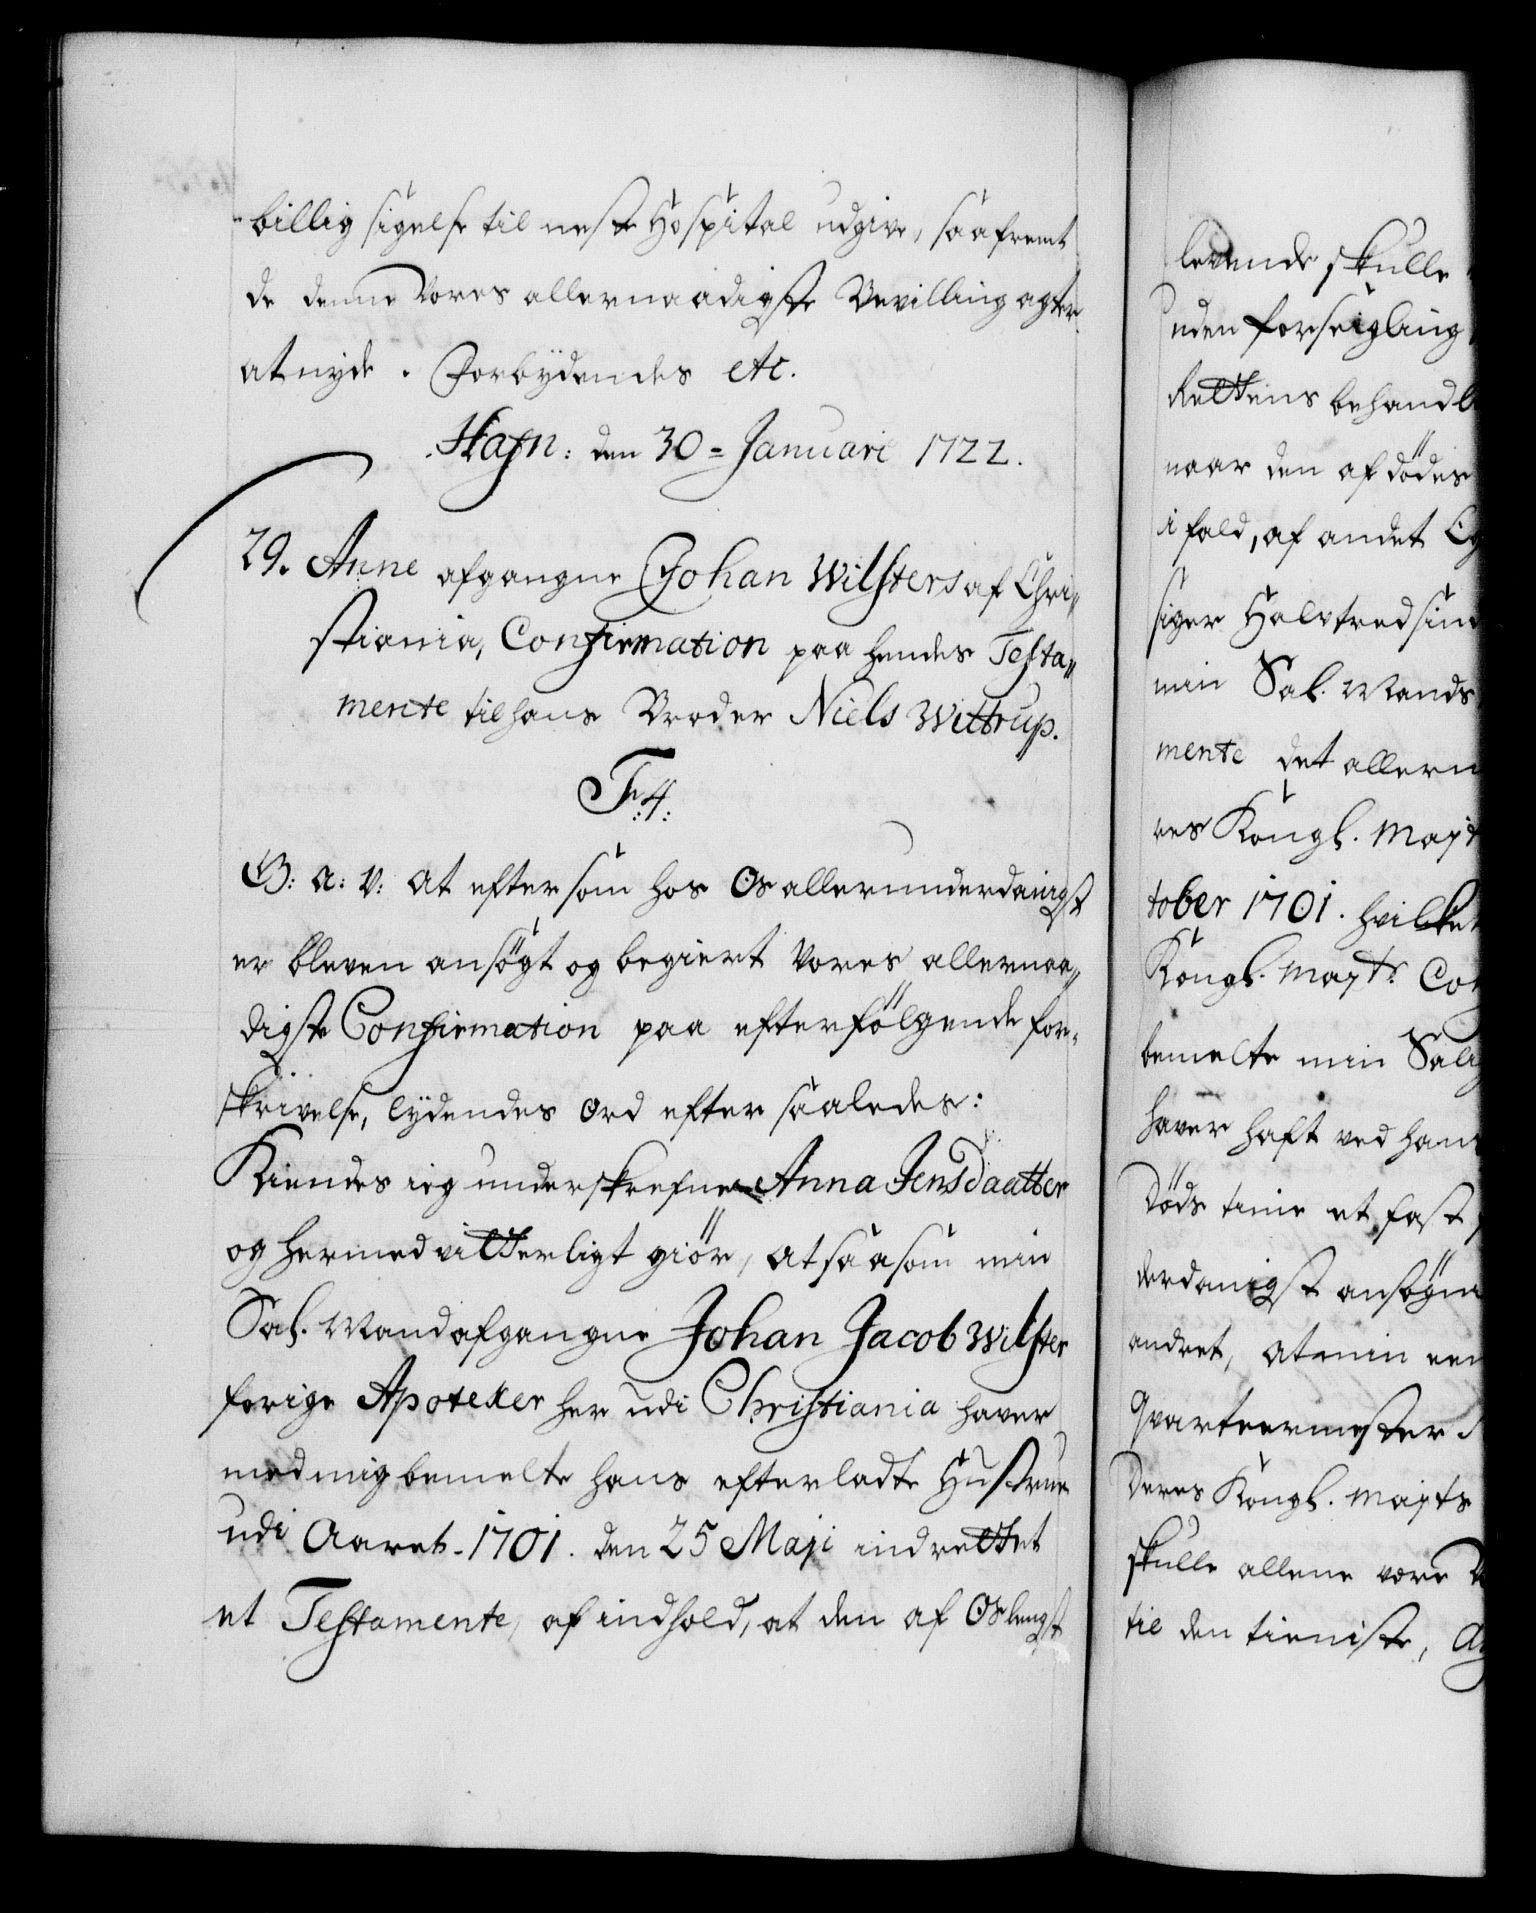 billig sigelse til neste Hospital udgive, saafremt
de denne Vores allernaadigste Bevilling agter
at nyde. Forbydendes etc.
Hafn: den 30 = Januari 1722.
29. Anne afgangne Johan Wilsters af Chri„
stiania, Confirmation paa hendes Testa„
mente til hans Broder Niels Wittrup.
F:4:
G: a: V: at eftersom hos Os allerunderdanigst
er bleven ansøgt og begiert Vores allernaa„
digste Confirmation paa efterfølgende for„
skrivelse, lydendes ord efter saaledes:
Kiendes ieg underskrefne Anna Jensdaatter
og hermed vitterligt giør, at saasom min
Sal. Mand afgangne Johan Jacob Wilster
forige Apoteker her udi Christiania haver
med mig bemelte hans efterladte Hustrue
udi Aaret 1701. den 25 Maji indrettet
et Testamente, af indhold, at den af Os lengst
levende skulle
uden forseigling
Rettens behandl
naar den af dødes
i fald, af andet
siger Halvtredsin
min Sal. Mands
mente det allern
res Kongl. Mayt
tober 1701. hvilket
Kongl. Mayts Con
bemelte min Salig
haver haft ved hans
Døds time et fast
derdanigst ansøgni
andret, at min een
Qvarteermester
Deres Kongl. Mayts
skulle allene være
til den tieniste,